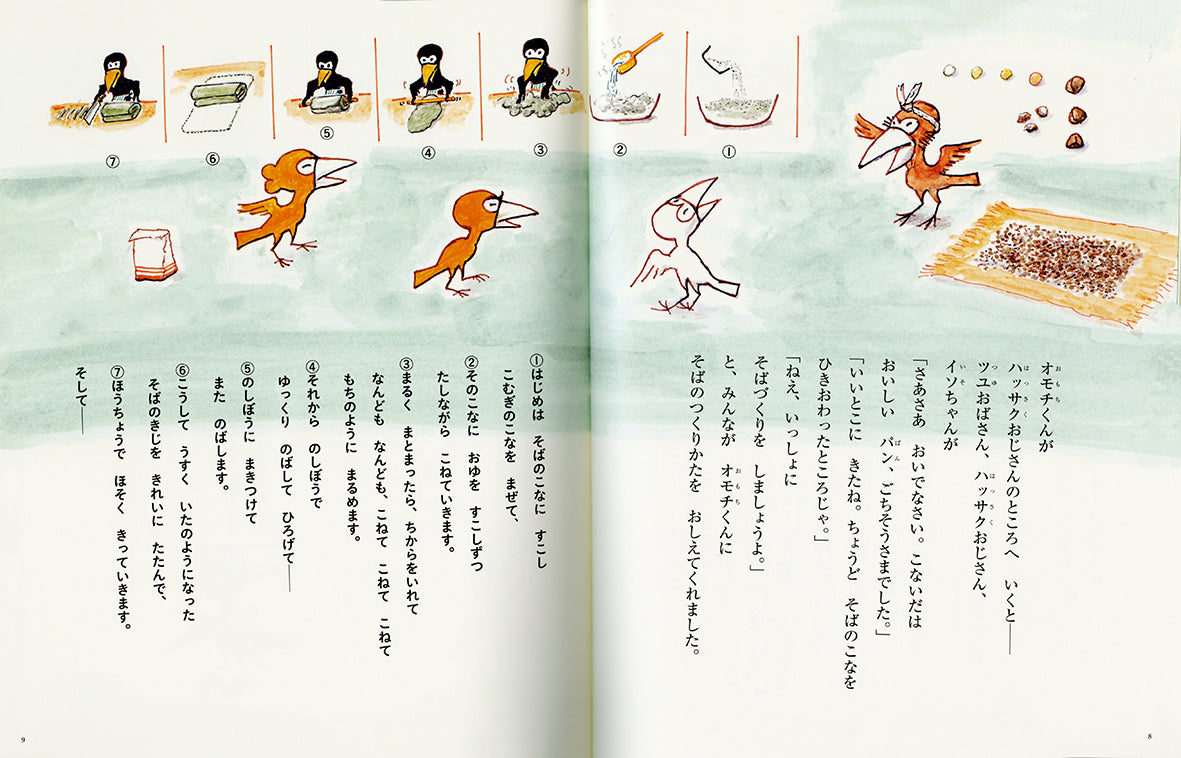 オモチくんが
ハッサクおじさんのところへ　いくと――
ツユおばさん、ハッサクおじさん、
イソちゃんが
「さあさあ　おいでなさい。こないだは
おいしい　パン、ごちそうさまでした。」
「いいとこに　きたね。ちょうど　そばのこなを
ひきおわったところじゃ。」
「ねえ、いっしょに
そばづくりを　しましょうよ。」
と、みんなが　オモチくんに
そばのつくりかたを　おしえてくれました。
8
①
②
③
④
⑤
⑥
⑦
①はじめは　そばのこなに　すこし
こむぎのこなを　まぜて、
②そのこなに　おゆを　すこしずつ
たしながら　こねていきます。
③まるく　まとまったら、ちからをいれて
なんども　なんども、こねて　こねて　こねて
もちのように　まるめます。
④それから　のしぼうで
ゆっくり　のばして　ひろげて――
⑤のしぼうに　まきつけて
また　のばします。
⑥こうして　うすく　いたのようになった
そばのきじを　きれいに　たたんで、
⑦ほうちょうで　ほそく　きっていきます。
そして――
9